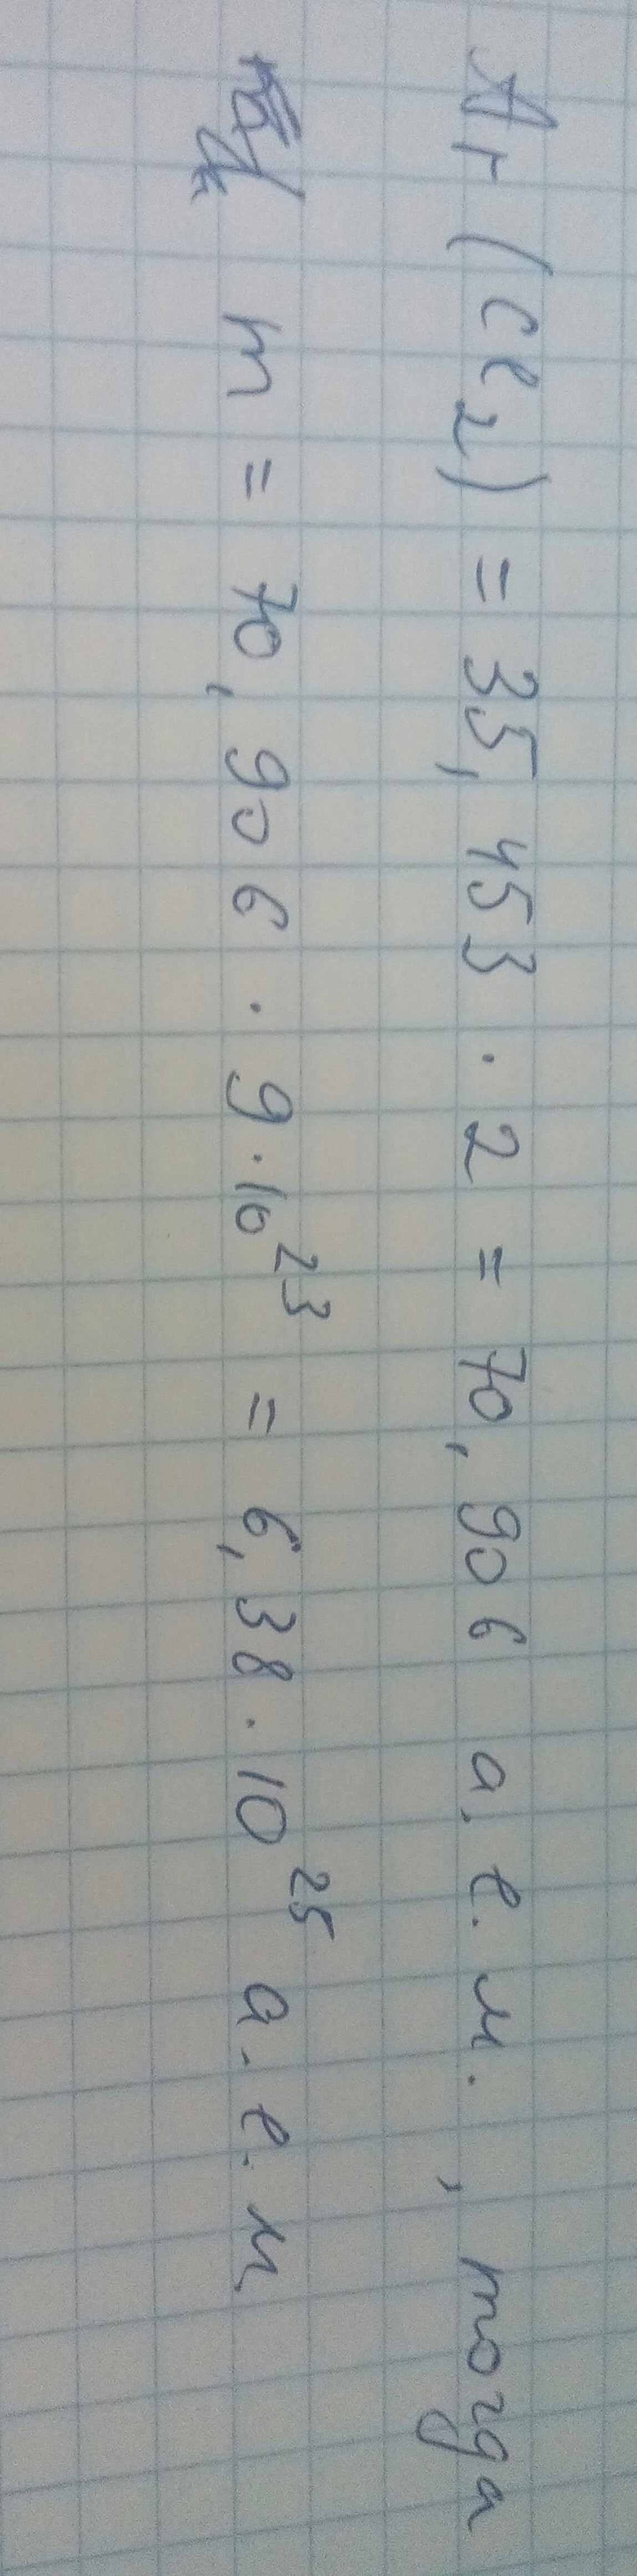 Ar (Cl₂) = 35,453 · 2 = 70,906 а.е.м. , тогда
m = 70,906 · 9·10²³ = 6,38·10²⁵ а.е.м